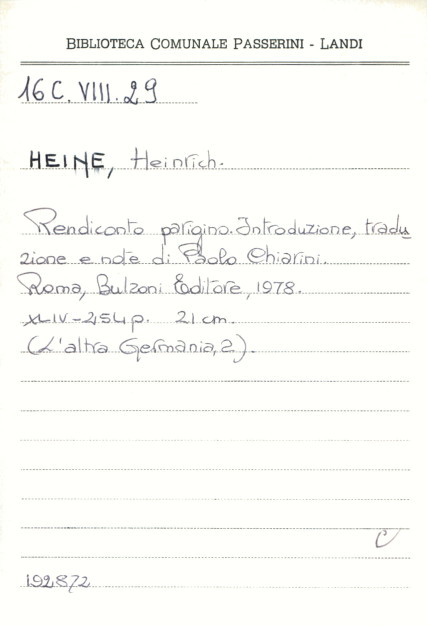 BIBLIOTECA COMUNALE PASSERINI - LANDI
16 C. VIII. 29
HEINE, Heinrich.
Rendiconto parigino. Introduzione, tradu
zione e note di Paolo Chiarini.
Roma, Bulzoni Editore, 1978.
XLIV-254 p. 21 cm.
(L'altra Germania, 2).
C
192872